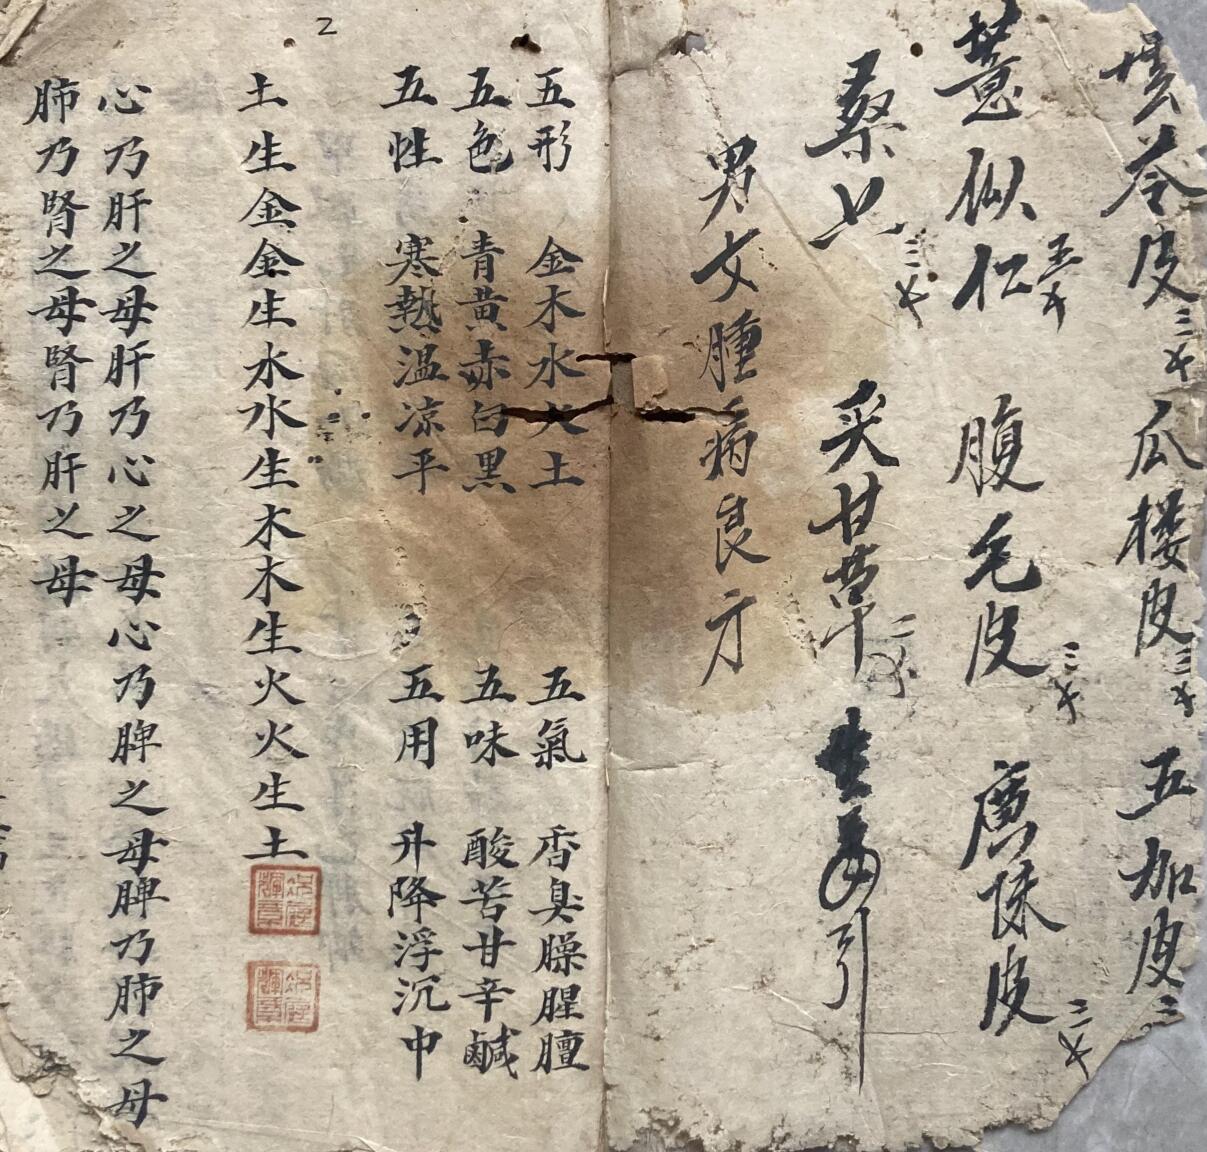 雲苓皮三钱 瓜楼皮三钱 五加皮三
薏似仁五钱 腹毛皮三钱 廣陳皮三钱
桑七三钱 炙甘草二钱 生姜引
男女腫病良方
五形 金木水火土 五氣 香臭臊腥膻
五色 青黄赤白黑 五味 酸苦甘辛鹹
五性 寒熱温凉平 五用 升降浮沉中
土生金金生水水生木木生火火生土
心乃肝之母肝乃心之母心乃脾之母脾乃肺之母
肺乃腎之母腎乃肝之母
2